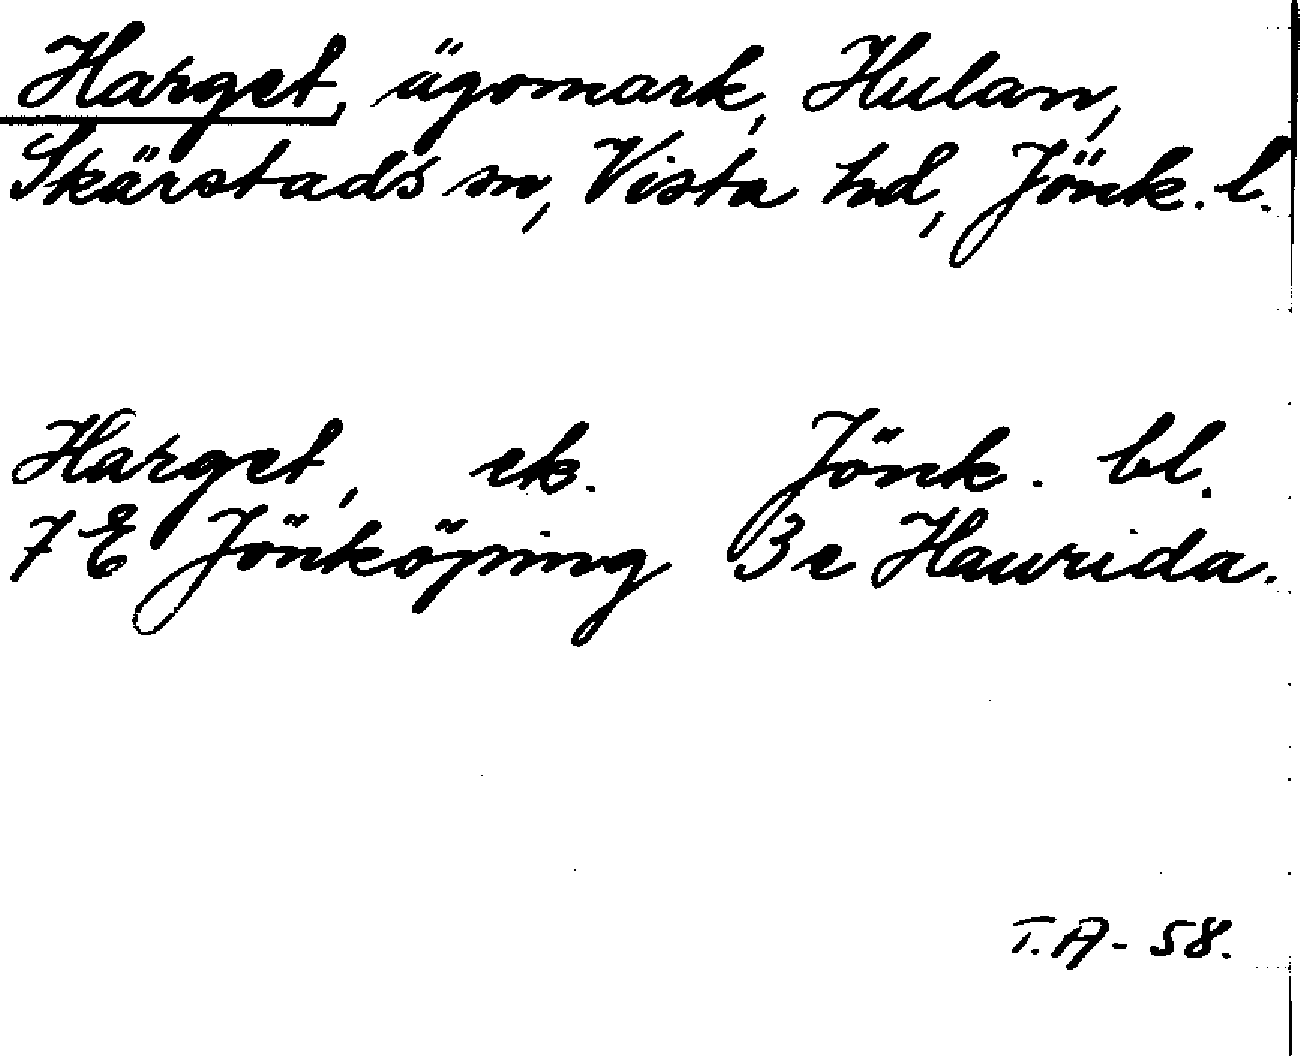 Harget, ägomark, Hulan,
Skärstads sn, Vista hd, Jönk. l.
Harget, ek. Jönk. bl.
7 E Jönköping 3 e Haurida.
T.A- 58.